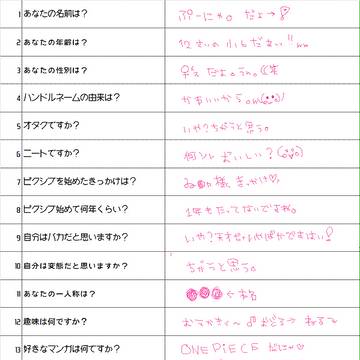 1 あなたの名前は? ぷーにゃ。だよ→
2 あなたの年齢は? 12さいの小6ださい!!ww
3 あなたの性別は? ♀だよ。うん。
4 ハンドルネームの由来は? かわいいからom
5 オタクですか? いや?ちがうと思う。
6 ニートてすか? 何ソレおいしい?
7 ピクシブを始めたきっかけは? 様。きっかけ♡
8 ピクシブ始めて何年くらい? 1年もたってないですね。
9 自分はバカだと思いますか? いや?天才
10 自分は変態だと思いますか? ちがうと思う。
11 あなたの一人称は? ←本名
12 趣味は何ですか? おえかき〜 おどる→ ねる〜
13 好きなマンガは何てすか? ONE PIECE